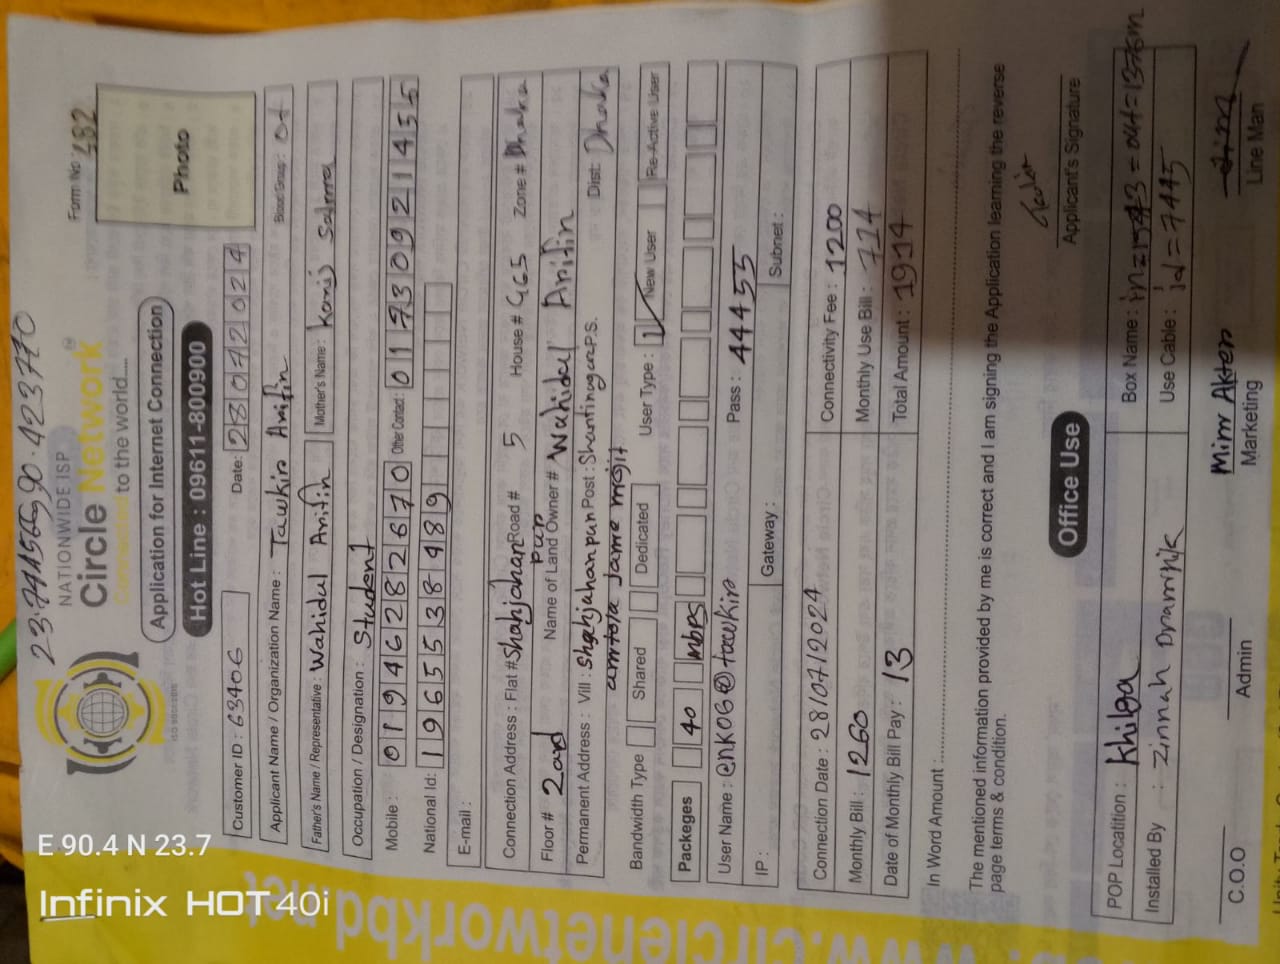 NATIONWIDE ISP
Circle Network
Connected to the world....
Form No: 282
Application for Internet Connection
Photo
Hot Line : 09611-800900
Customer ID : 63406
Date: 28072024
Applicant Name / Organization Name : Tawkir Arifin
Blood Group : O+
Father's Name / Representative : Wahidul Arifin
Mother's Name :
Occupation / Designation : Student
Mobile : 01946282670
Other Contact : 01730921455
National Id: 1965538489
E-mail :
Connection Address : Flat # Shahjahanpur
Road # 5
House # 465
Zone # Dhaka
Floor # 2and
Name of Land Owner # Wahidul Arifin
Permanent Address : Vill : Shahjahanpur Post : Shantinagar P.S.
Dist: Dhaka
amtola Jame mojit
Bandwidth Type
Shared
Dedicated
User Type :
New User
Re-Active User
Packeges
40 mbps
User Name :
Pass : 44455
IP :
Gateway :
Subnet :
Connection Date : 28/07/2024
Connectivity Fee : 1200
Monthly Bill : 1260
Monthly Use Bill : 714
Date of Monthly Bill Pay : 13
Total Amount : 1914
In Word Amount :
The mentioned information provided by me is correct and I am signing the Application learning the reverse
page terms & condition.
Applicant's Signature
Office Use
POP Locatition : Khilga
Box Name :
Installed By : Zinnah
Use Cable : id = 7445
C.O.O
Admin
Mim Akter
Marketing
Line Man
www.circlenetworkbd.net
E 90.4 N 23.7
Infinix HOT 40i